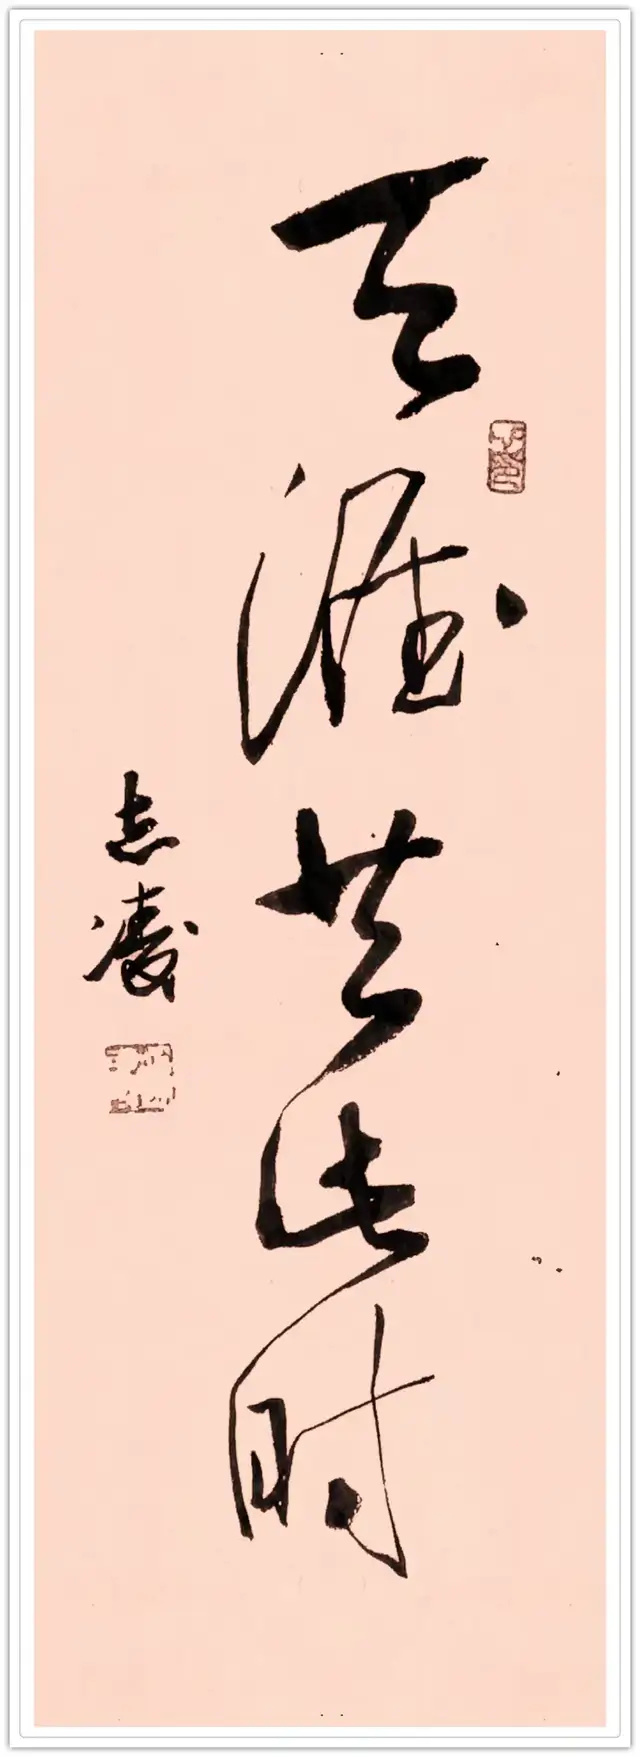 天涯共此时
志凌